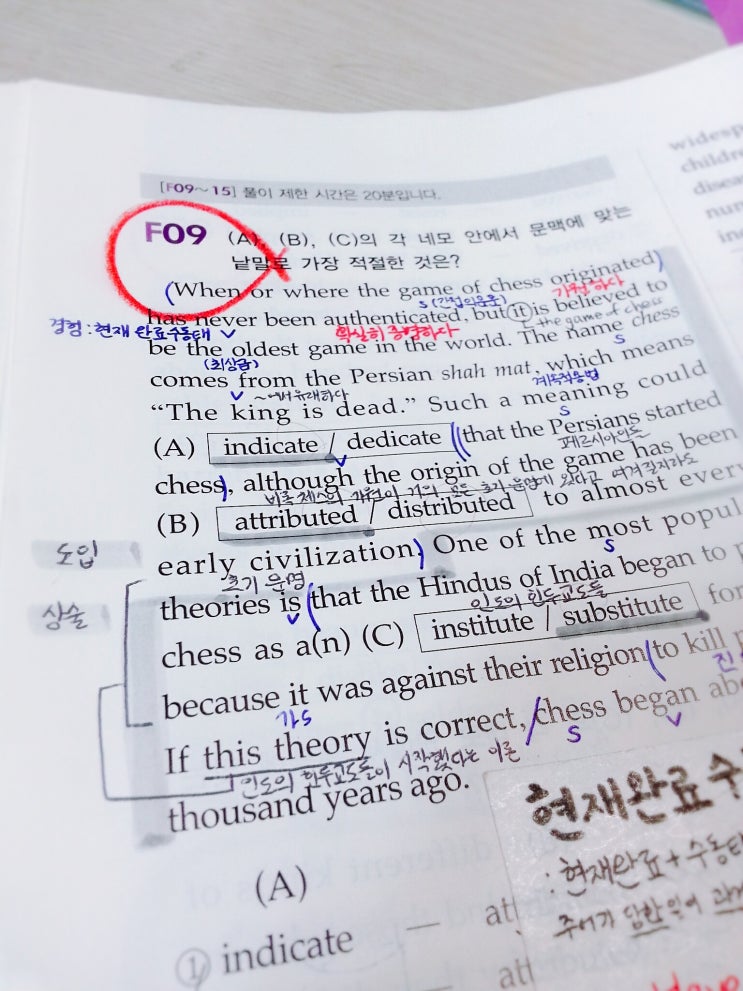 [F09~15] 풀이 제한 시간은 20분입니다.
F09 (A), (B), (C)의 각 네모 안에서 문맥에 맞는
낱말로 가장 적절한 것은?
(When or where the game of chess originated)
기원하다
s (간접의문문)
has never been authenticated, but it is believed to
경험:현재 완료수동태 v
확실히 증명하다
the game of chess
be the oldest game in the world. The name chess
(최상급)
s
comes from the Persian shah mat, which means
v ~에서 유래하다
계속적용법
"The king is dead." Such a meaning could
s
(A) indicate / dedicate (that the Persians started
페르시아인들
v
chess), although the origin of the game has been
비록 체스의 기원이 거의 모든 초기 문명에 있다고 여겨질지라도
(B) attributed / distributed to almost every
도입
early civilization) One of the most popul
초기 문명
s
상술
theories is (that the Hindus of India began to p
v
인도의 힌두교도들
chess as a(n) (C) institute / substitute for
because it was against their religion (to kill p
가S
진
If this theory is correct, / chess began abo
s
v
인도의 힌두교도들이 시작했다는 이론
thousand years ago.
현재완료 수
: 현재완료 + 수동태
주어가 당한 일이
(A)
① indicate — att
— att